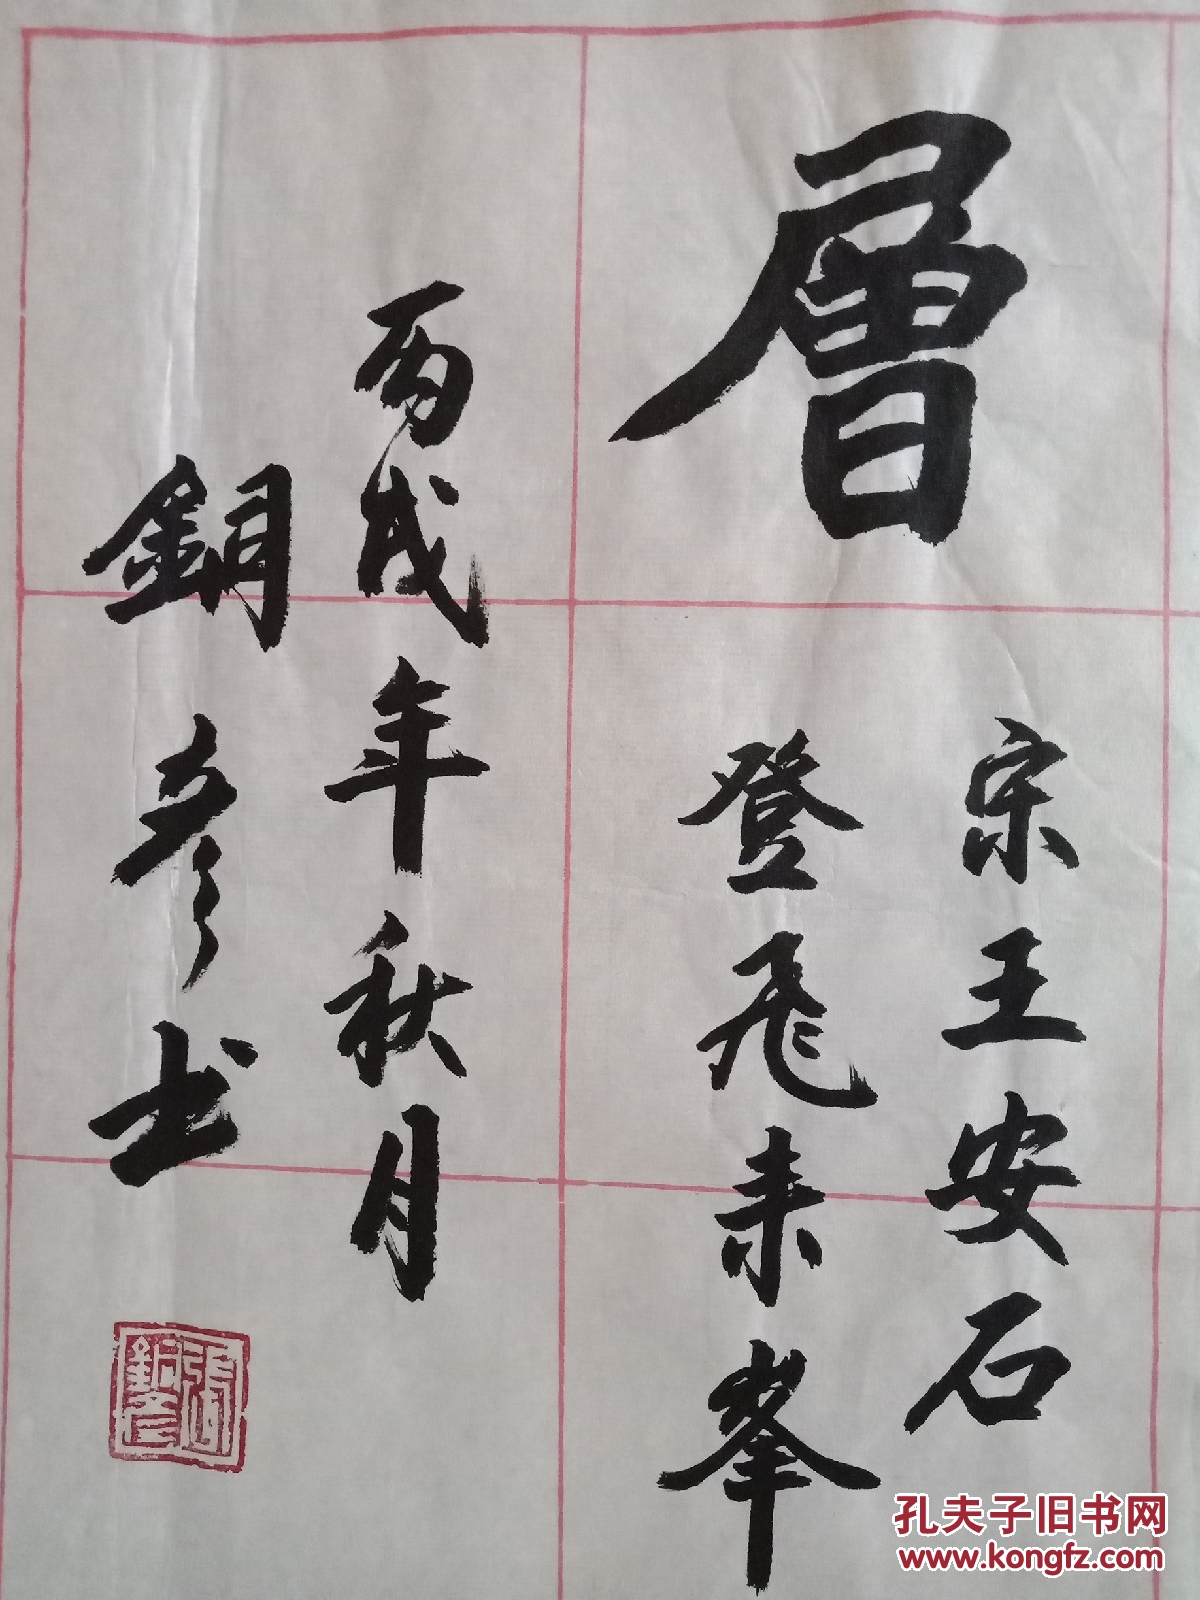 層
宋王安石
登飛来峯
丙戌年秋月
銅彦书
孔夫子旧书网
www.kongfz.com